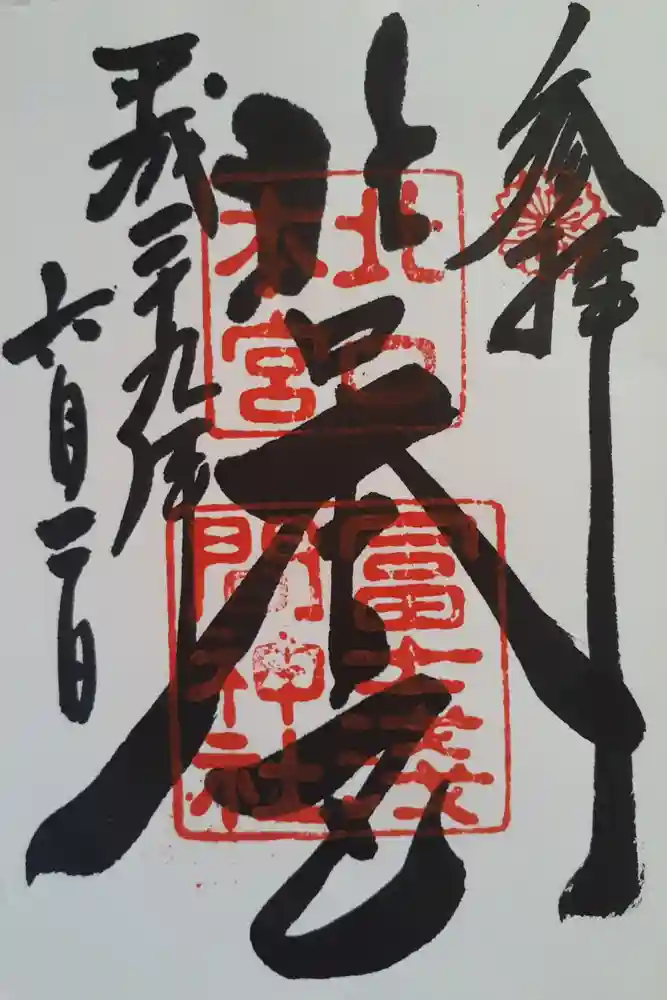 参拝
北口本宮
平成二十九年
六月二日
北口
本宮
冨士淺
間神社